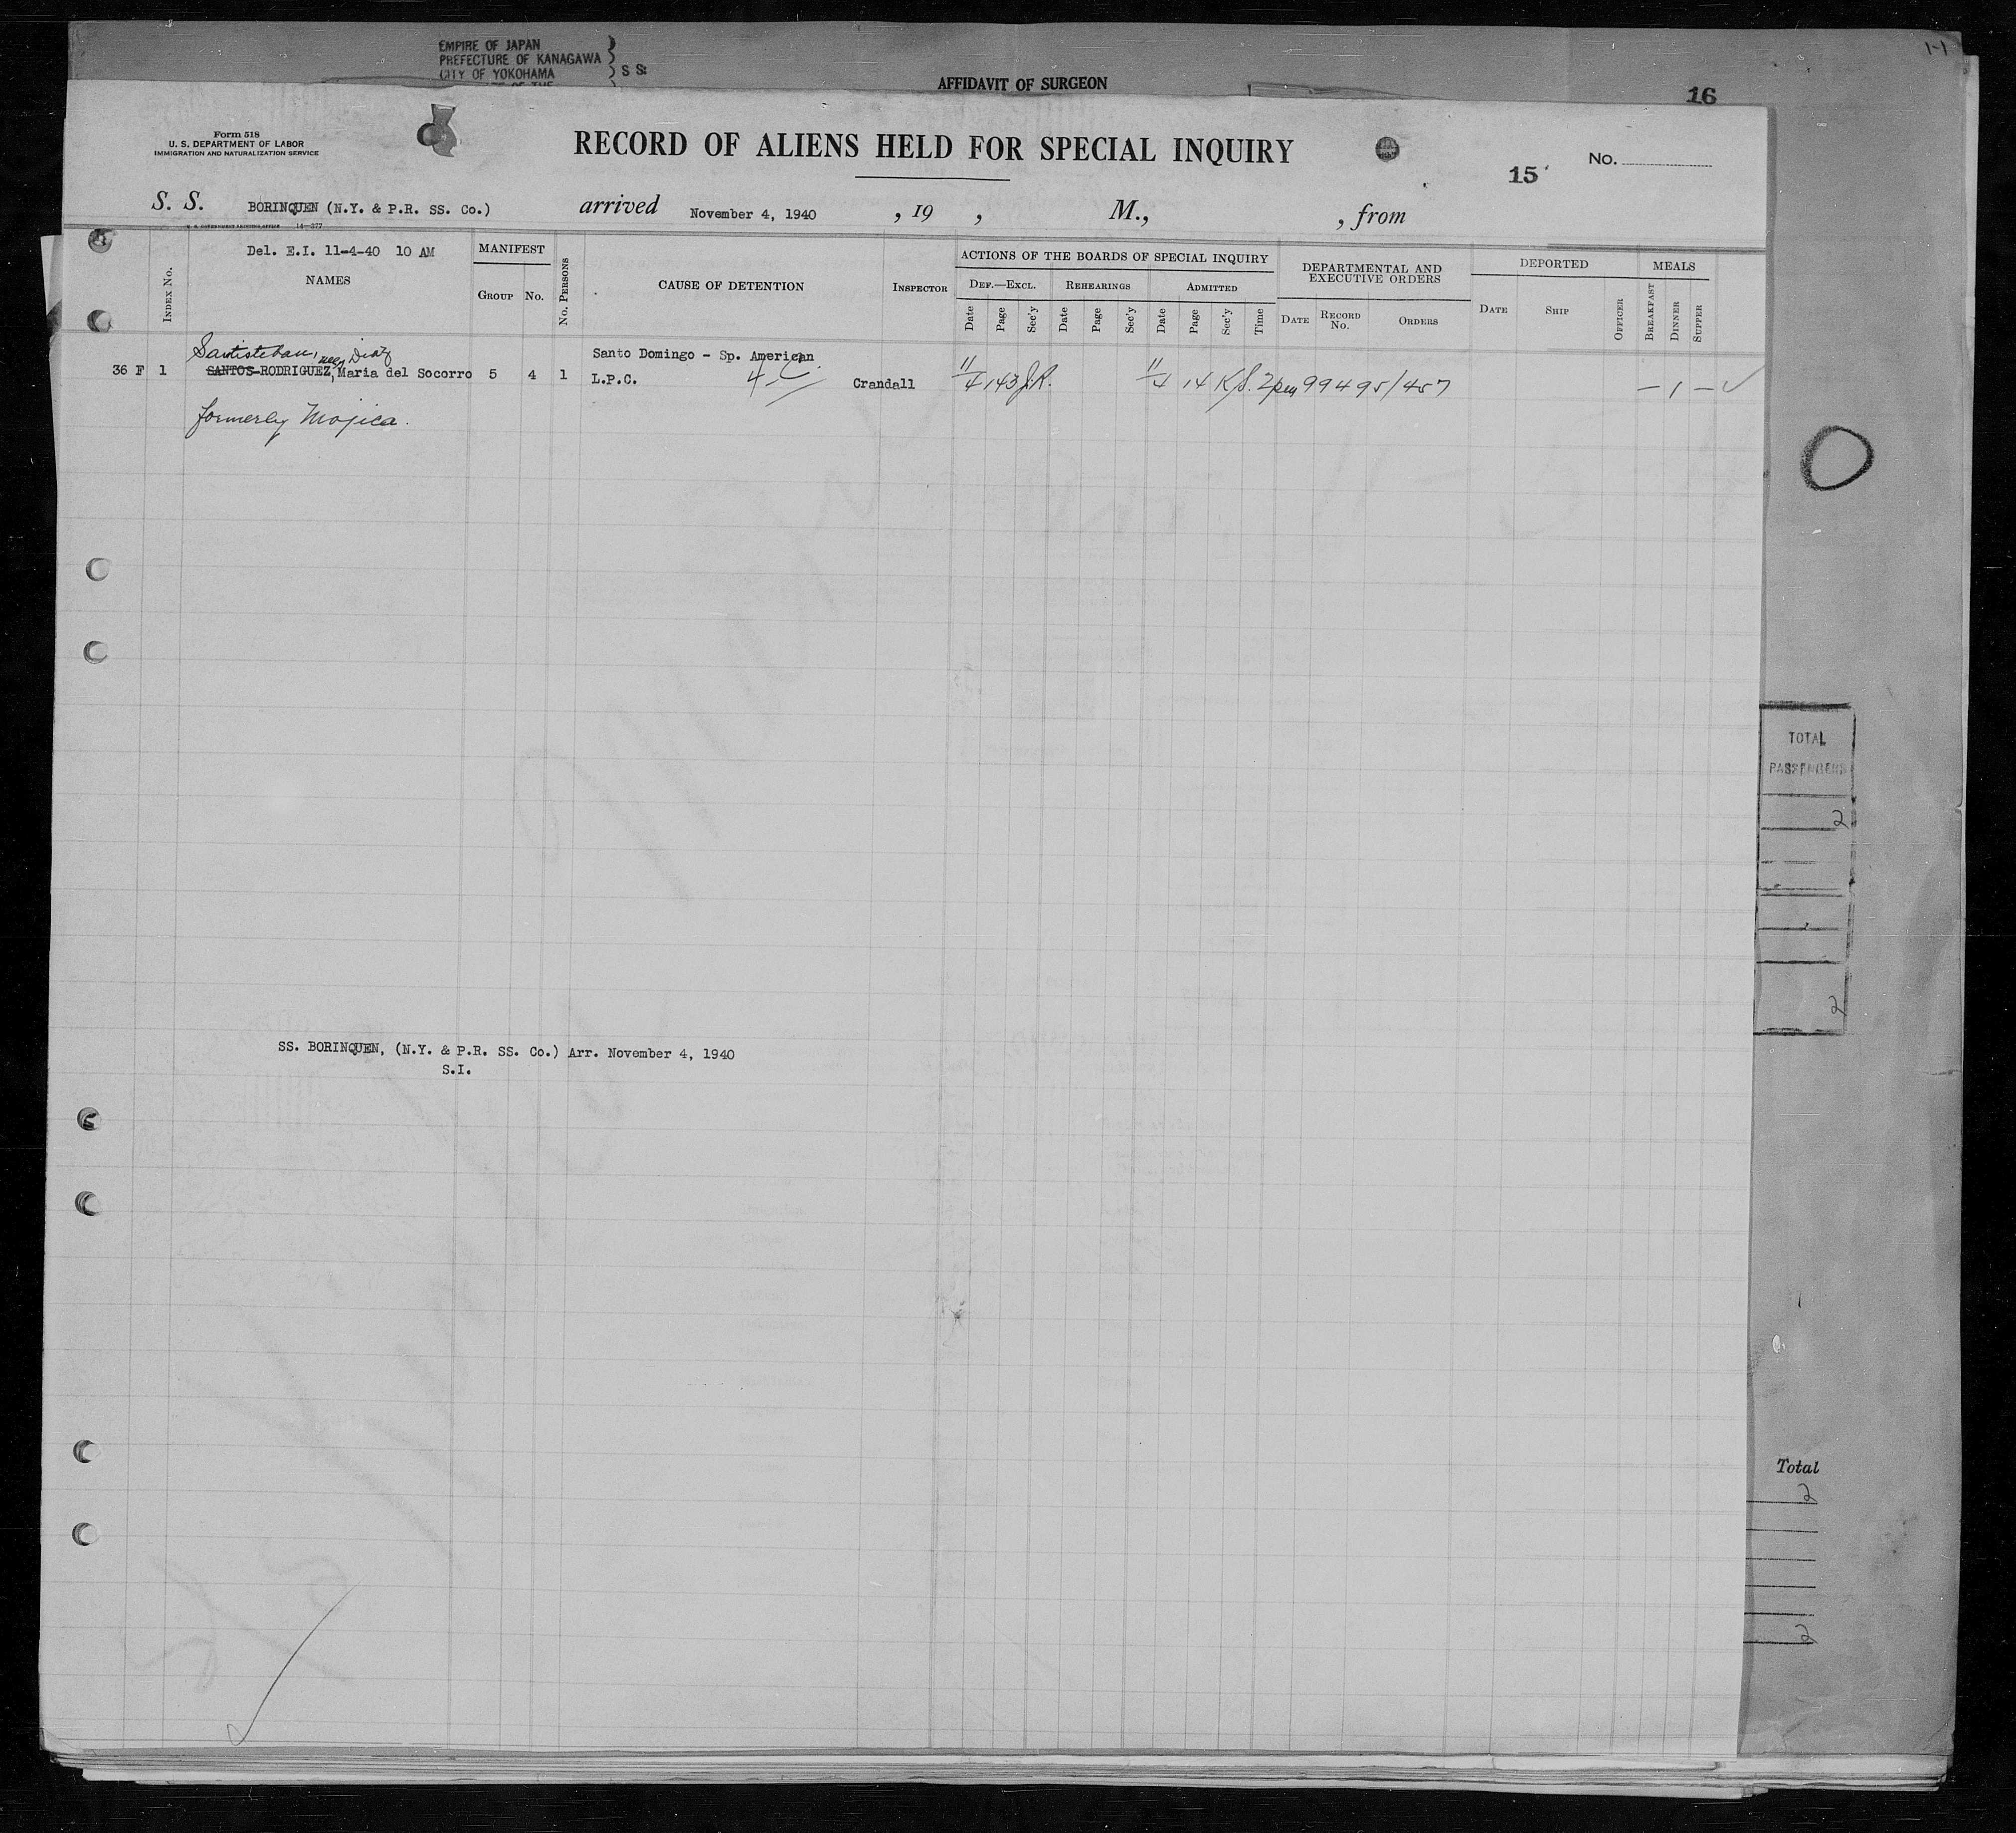 EMPIRE OF JAPAN
PREFECTURE OF KANAGAWA
CITY OF YOKOHAMA
S S:
AFFIDAVIT OF SURGEON
1-1
16
Form 518
U. S. DEPARTMENT OF LABOR
IMMIGRATION AND NATURALIZATION SERVICE
RECORD OF ALIENS HELD FOR SPECIAL INQUIRY
15
No.
S. S. BORINQUEN (N.Y. & P.R. SS. Co.) arrived November 4, 1940 , 19 , M., , from
14—377
Del. E.I. 11-4-40 10 AM
MANIFEST
ACTIONS OF THE BOARDS OF SPECIAL INQUIRY
DEPARTMENTAL AND EXECUTIVE ORDERS
DEPORTED
MEALS
Index No.
NAMES
Group
No.
No. Persons
CAUSE OF DETENTION
Inspector
Def.—Excl.
Rehearings
Admitted
Date Page Sec'y Date Page Sec'y Date Page Sec'y Time
Date Record No. Orders
Date Ship Officer
Breakfast Dinner Supper
Santisteban, nee Diaz
Santo Domingo - Sp. American
36 F 1 SANTOS-RODRIGUEZ, Maria del Socorro 5 4 1 L.P.C. Crandall 11/4 143 J.R. 11/4 14 K/S. 2pm 99495/457 — 1 —
formerly Mojica.
TOTAL
PASSENGERS
2
2
SS. BORINQUEN, (N.Y. & P.R. SS. Co.) Arr. November 4, 1940
S.I.
Total
2
2